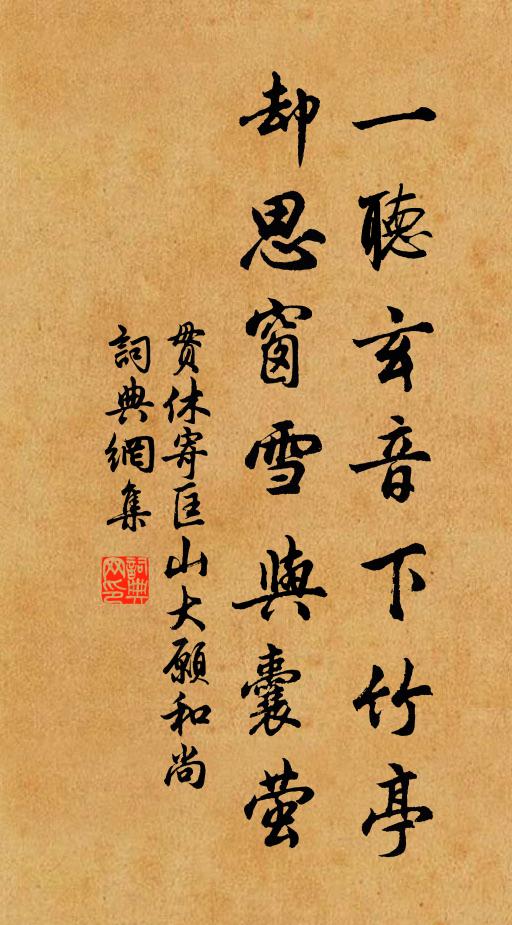 一聽玄音下竹亭
却思窗雪與囊萤
贯休寄匡山大願和尚
詞典網集
詞典网印